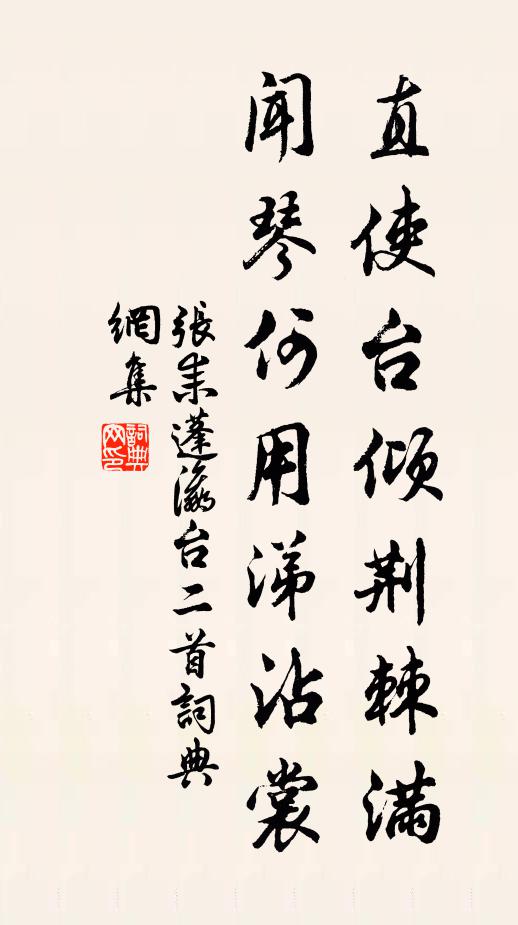 直使台倾荆棘满
闻琴何用涕沾裳
張耒蓬瀛台二首詞典
網集
詞典
网印